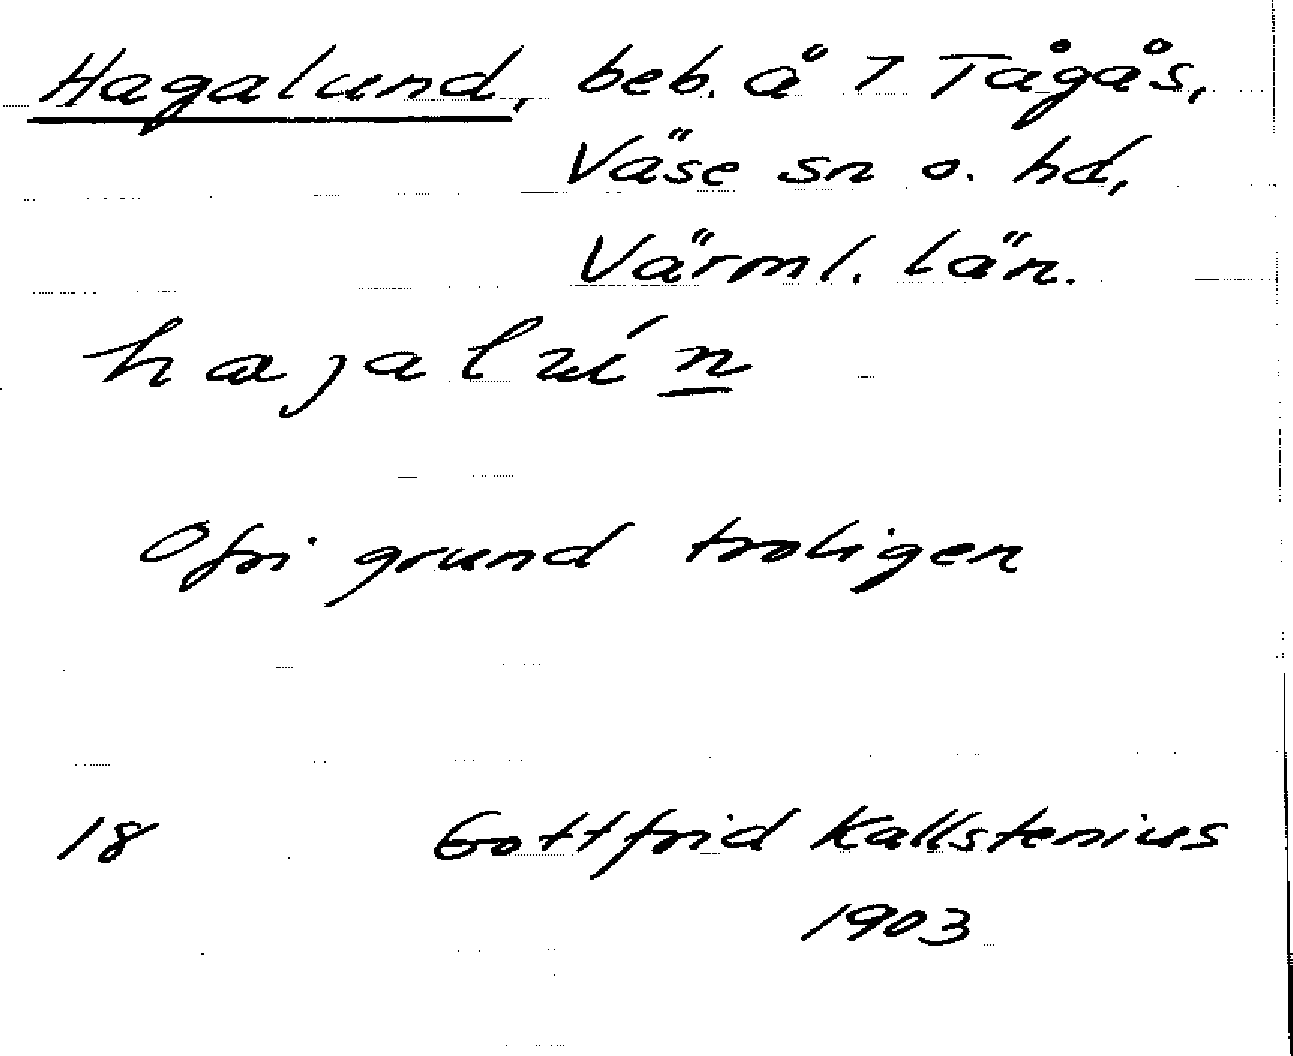 Hagalund, beb. å 7 Tågås,
Väse sn o. hd,
Värml. län.
hajalún
Ofri grund troligen
18 Gottfrid Kallstenius
1903